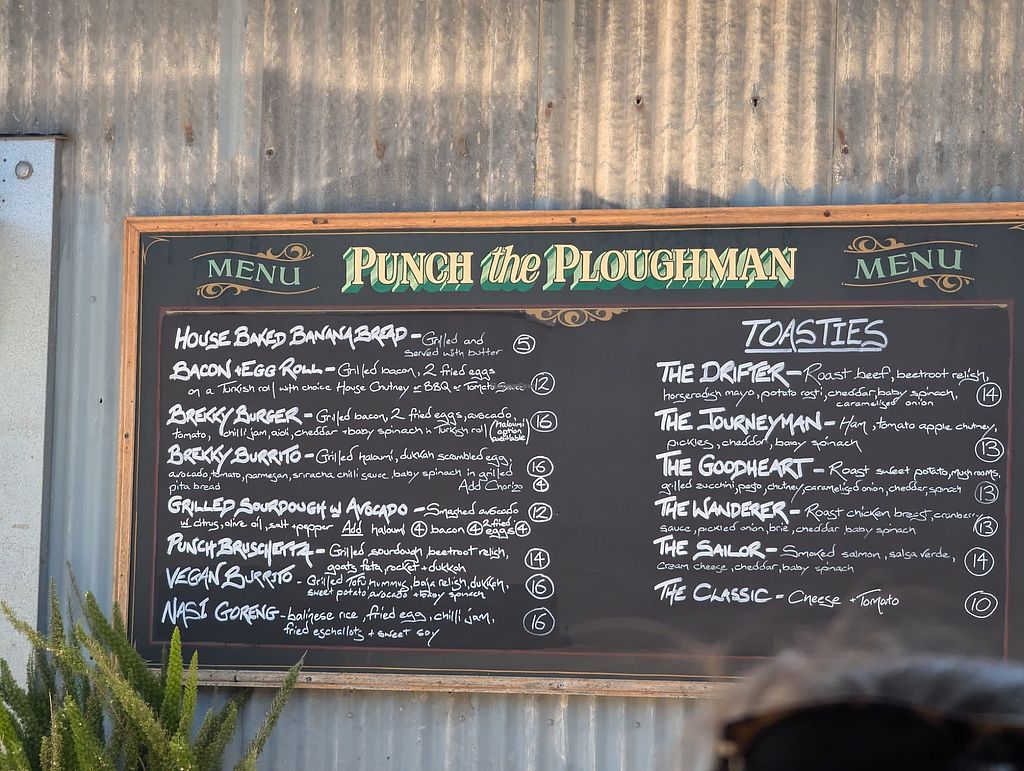 MENU
PUNCH the PLOUGHMAN
MENU
HOUSE BAKED BANANA BREAD - Grilled and
served with butter 5
BACON + EGG ROLL - Grilled bacon, 2 fried eggs
on a Turkish roll with choice House Chutney or BBQ or Tomato 12
BREKKY BURGER - Grilled bacon, 2 fried eggs, avocado,
tomato, chilli jam, aioli, cheddar + baby spinach in Turkish roll (Haloumi option available) 16
BREKKY BURRITO - Grilled haloumi, dukkah scrambled egg,
avocado, tomato, parmesan, sriracha chilli sauce, baby spinach in grilled 16
pita bread Add Chorizo 4
GRILLED SOURDOUGH W AVOCADO - Smashed avocado 12
w citrus, olive oil, salt + pepper Add haloumi 4 bacon 4 2 fried eggs 4
PUNCH BRUSCHETTA - Grilled sourdough, beetroot relish,
goats feta, rocket + dukkah 14
VEGAN BURRITO - Grilled Tofu hummus, baja relish, dukkah,
sweet potato, avocado + baby spinach 16
NASI GORENG - balinese rice, fried egg, chilli jam,
fried eschallots + sweet soy 16
TOASTIES
THE DRIFTER - Roast beef, beetroot relish,
horseradish mayo, potato rosti, cheddar, baby spinach, 14
caramelised onion
THE JOURNEYMAN - Ham, tomato apple chutney,
pickles, cheddar, baby spinach 13
THE GOODHEART - Roast sweet potato, mushrooms,
grilled zucchini, pesto, chutney, caramelised onion, cheddar, spinach 13
THE WANDERER - Roast chicken breast, cranberry
sauce, pickled onion, brie, cheddar baby spinach 13
THE SAILOR - Smoked salmon, salsa verde,
cream cheese, cheddar, baby spinach 14
THE CLASSIC - Cheese + Tomato 10